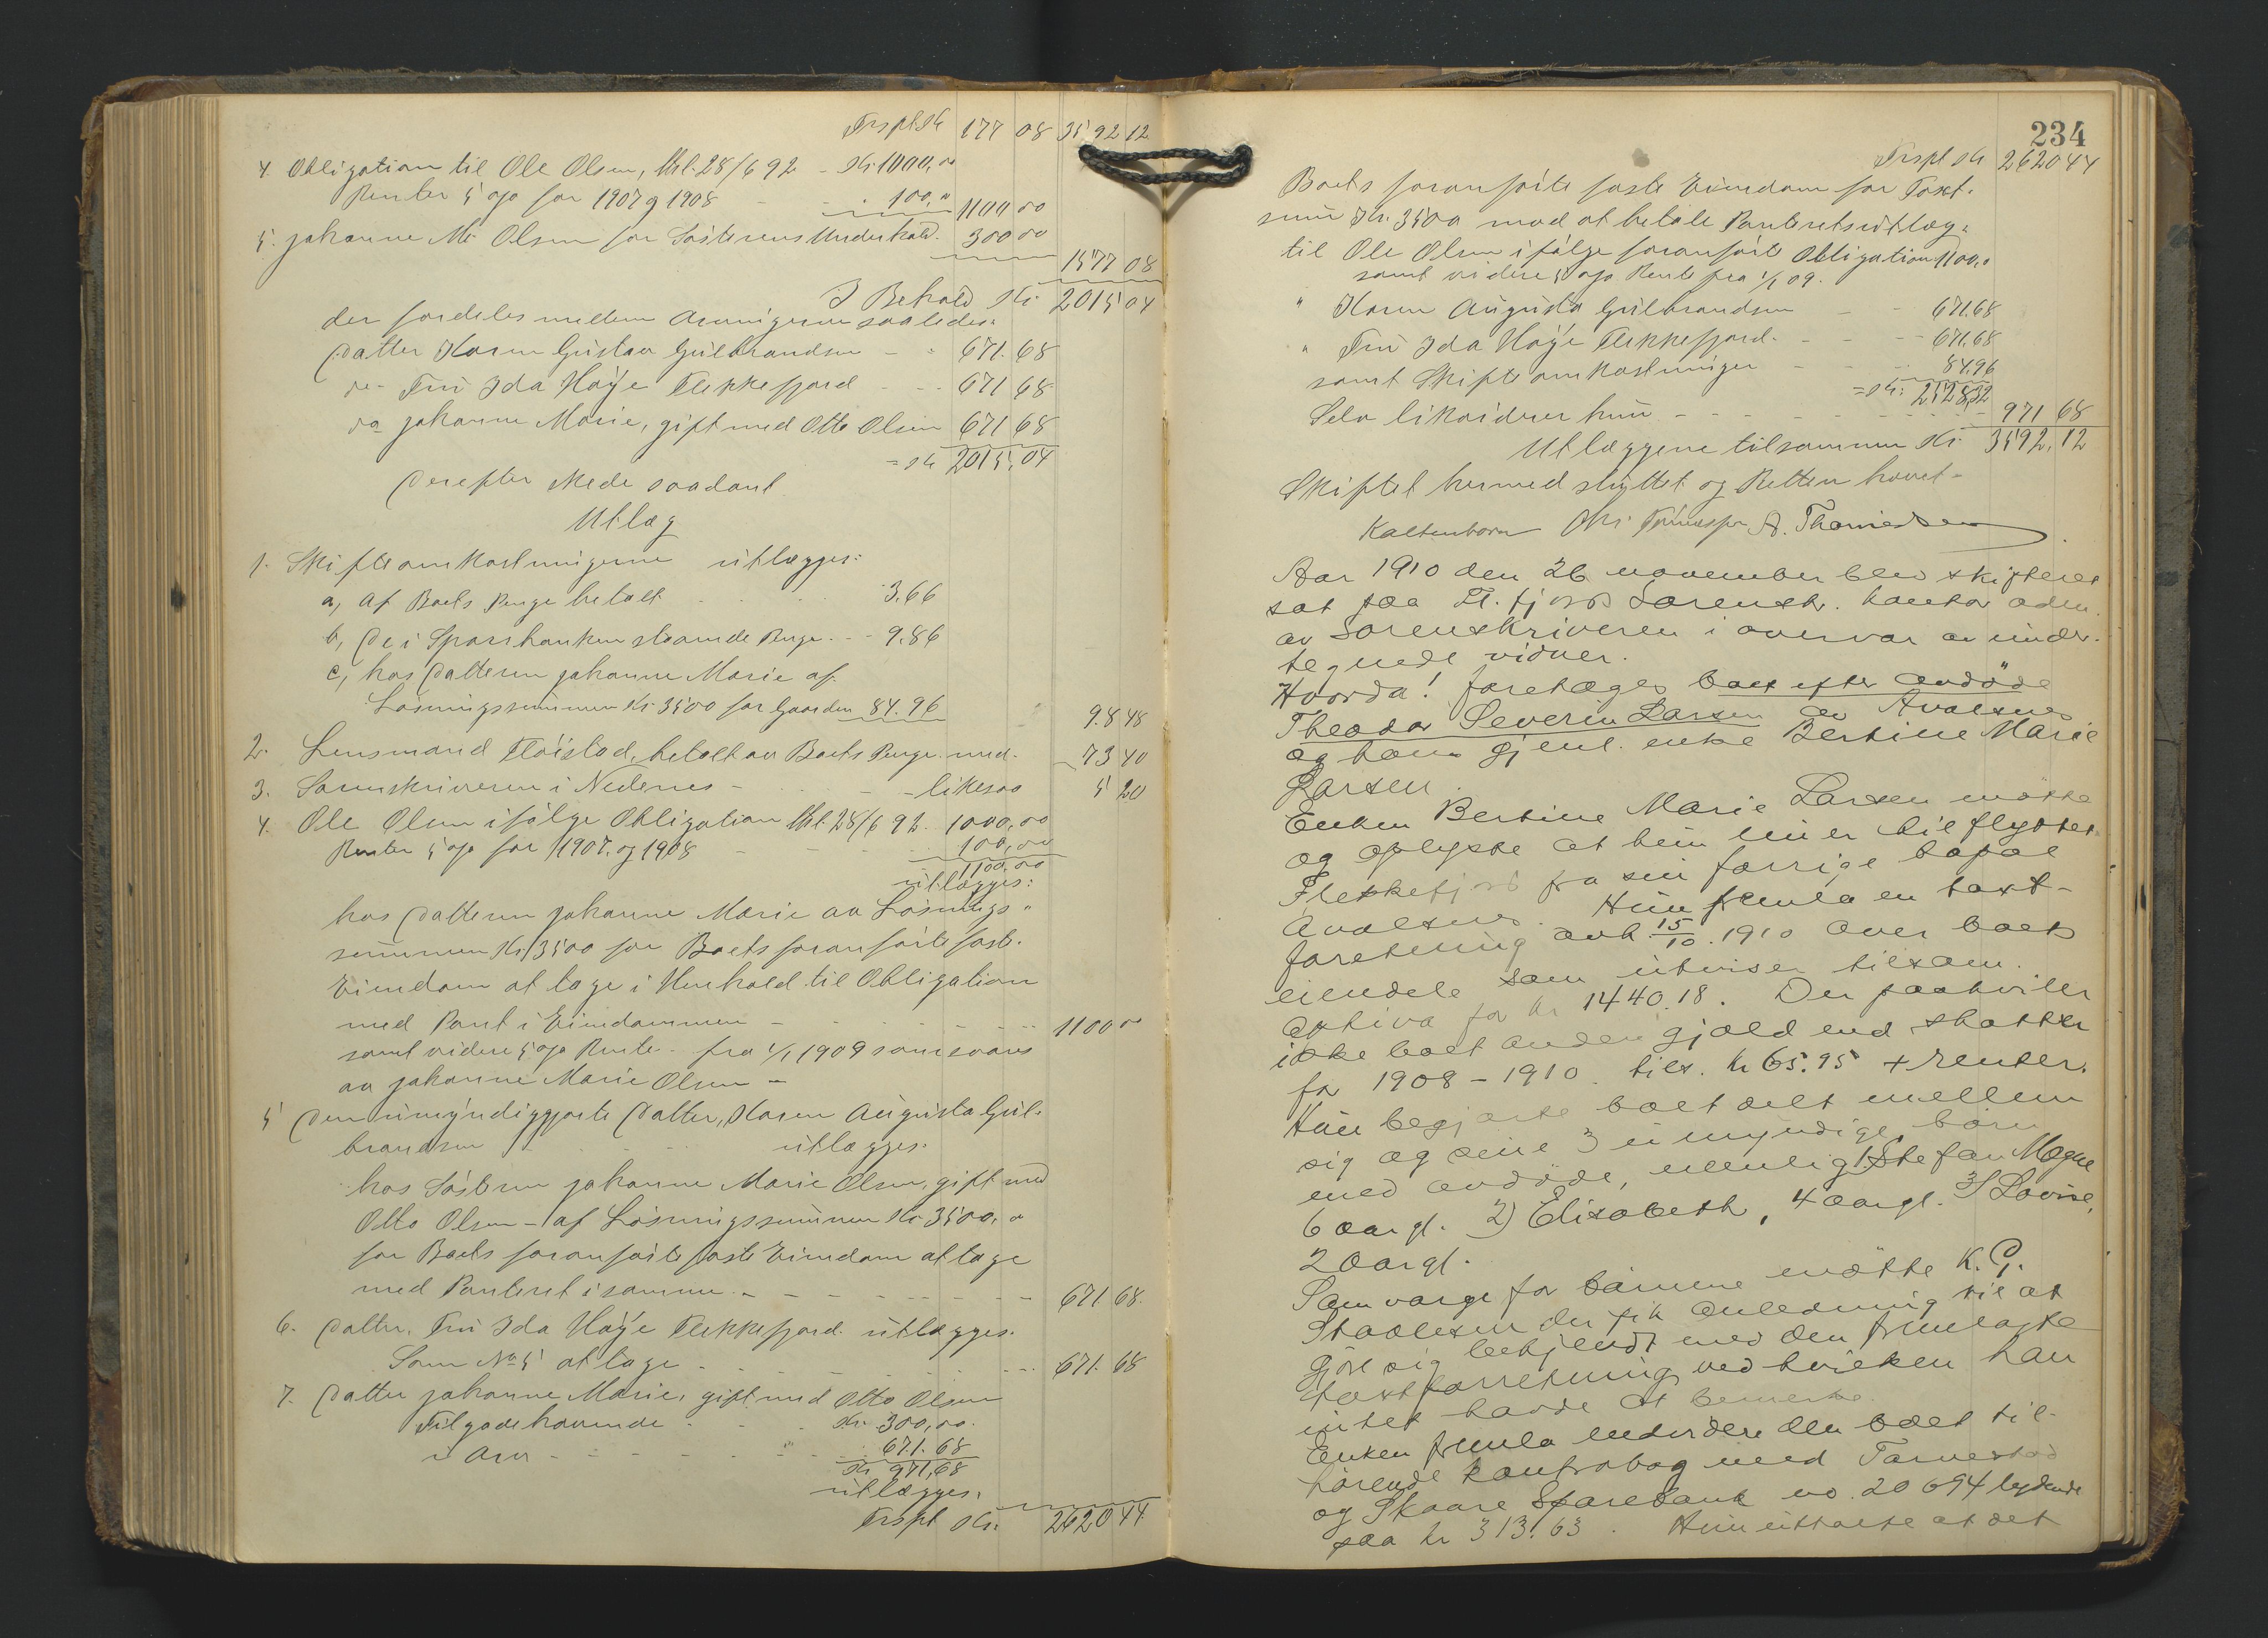 Trspt Kr 177 08 3592 12
4. Obligation til Ole Olsen, thl. 28/6 92 - Kr. 1000,00
Renter 5 o/o for 1907 og 1908 - - 100,00 1100 00
5. Johanne M. Olsen for Søsterens Underhold. 300 00
1577 08
I Behold Kr. 2015 04
der fordeles mellem Arvingerne saaledes:
Datter Karen Gustav Gulbrandsen - - 671.68
do- Fru Ida Høye Flekkefjord - - 671 68
do Johanne Marie, gift med Otto Olsen 671 68
= Kr 2015,04
Derefter skede saadant
Utlæg
1. Skifteomkostningerne utlægges:
a, af Boets Penge betalt - - - 3.66
b, De i Sparebanken staaende Penge. - - 9.86
c, hos Datteren Johanne Marie af
Løsningssummen Kr. 3500 for Gaarden 84.96
9.8 48
2. Lensmand Fløistad, betalt av Boets Penge med. - 73 40
3. Sorenskriveren i Nedenes - - - likesaa 5 20
4. Ole Olsen ifølge Obligation thl. 28/6 92. 1000,00
Renter 5 o/o for 1907. og 1908 - - - 100,00
1100,00
utlægges:
hos Datteren Johanne Marie av Løsnings-
summen Kr. 3500 for Boets foranførte faste
Eiendom at tage i Henhold til Obligation
med Pant i Eiendommen - - - 1100 00
samt videre 5 o/o Rente - fra 1/1 1909 som svares
av Johanne Marie Olsen -
5 Den umyndiggjorte Datter, Karen Augusta Gul-
brandsen - - - utlægges.
hos Søsteren Johanne Marie Olsen, gift med
Otto Olsen - af Løsningssummen Kr 3500,00
for Boets foranførte faste Eiendom at tage
med Panteret i samme - - - 671 68.
6. Datter. Fru Ida Høye Flekkefjord. utlægges.
Som No 5 at tage - - - 671. 68
7. Datter Johanne Marie, gift med Otto Olsen
Tilgodehavende - - Kr. 300,00.
" Arv - - - 671.68
Kr 971,68
utlægges.
Trspt Kr. 2620 44
234
Trspt Kr 2620 44
Boets foranførte faste Eiendom for Taxt-
sum Kr. 3500 mod at betale Panteretsutlæg.
til Ole Olsen ifølge foranførte Obligation 1100,00
samt videre 5 o/o Rente fra 1/1 09.
" Karen Augusta Gulbrandsen - - 671.68
" Fru Ida Høye Flekkefjord. - - - 671.68
samt Skifteomkostninger - - - 84.96
= Kr: 2528,32
Selv likviderer hun - - - 971 68
Utlæggene tilsammen Kr. 3592,12
Skiftet hermed sluttet og Retten hævet -
Kaltenborn A. Thomesen
Aar 1910 den 26 november blev skifteret
sat paa Fl. fjord Sorenskr. kontor adm.
av Sorenskriveren i overvær av under-
tegnede vidner.
Hvorda! foretoges boet efter avdøde
Theodor Severin Larsen av Avaldsnes
og hans gjenl. enke Bertine Marie
Larsen.
Enken Bertine Marie Larsen møtte
og oplyste at hun nu er tilflyttet
Flekkefjord fra sin forrige bopæl
Avaldsnes. Hun fremla en taxt-
foretning avh. 15/10. 1910 over boets
eiendele som utviser tilsam.
aktiva for kr 1440.18. Der paahviler
ikke boet anden gjæld end skatter
for 1908 - 1910. tils. kr 65.95 + renter.
Hun begjærte boet delt mellem
sig og sine 3 umyndige børn
med avdøde, nemlig 1) Stefan Magne
6 aar gl. 2) Elisabeth, 4 aar gl. 3) Lovise,
2 aar gl.
Som værge for børnene møtte K. G.
Staalesen der fik anledning til at
gjøre sig bekjendt med den fremlagte
taxtforretning ved hvilken han
intet havde at bemerke.
Enken fremla endvidere den boet til-
hørende kontrabog med Torvestad
og Skaare Sparebank no. 20 694 lydende
paa kr 313.63. Hun uttalte at det